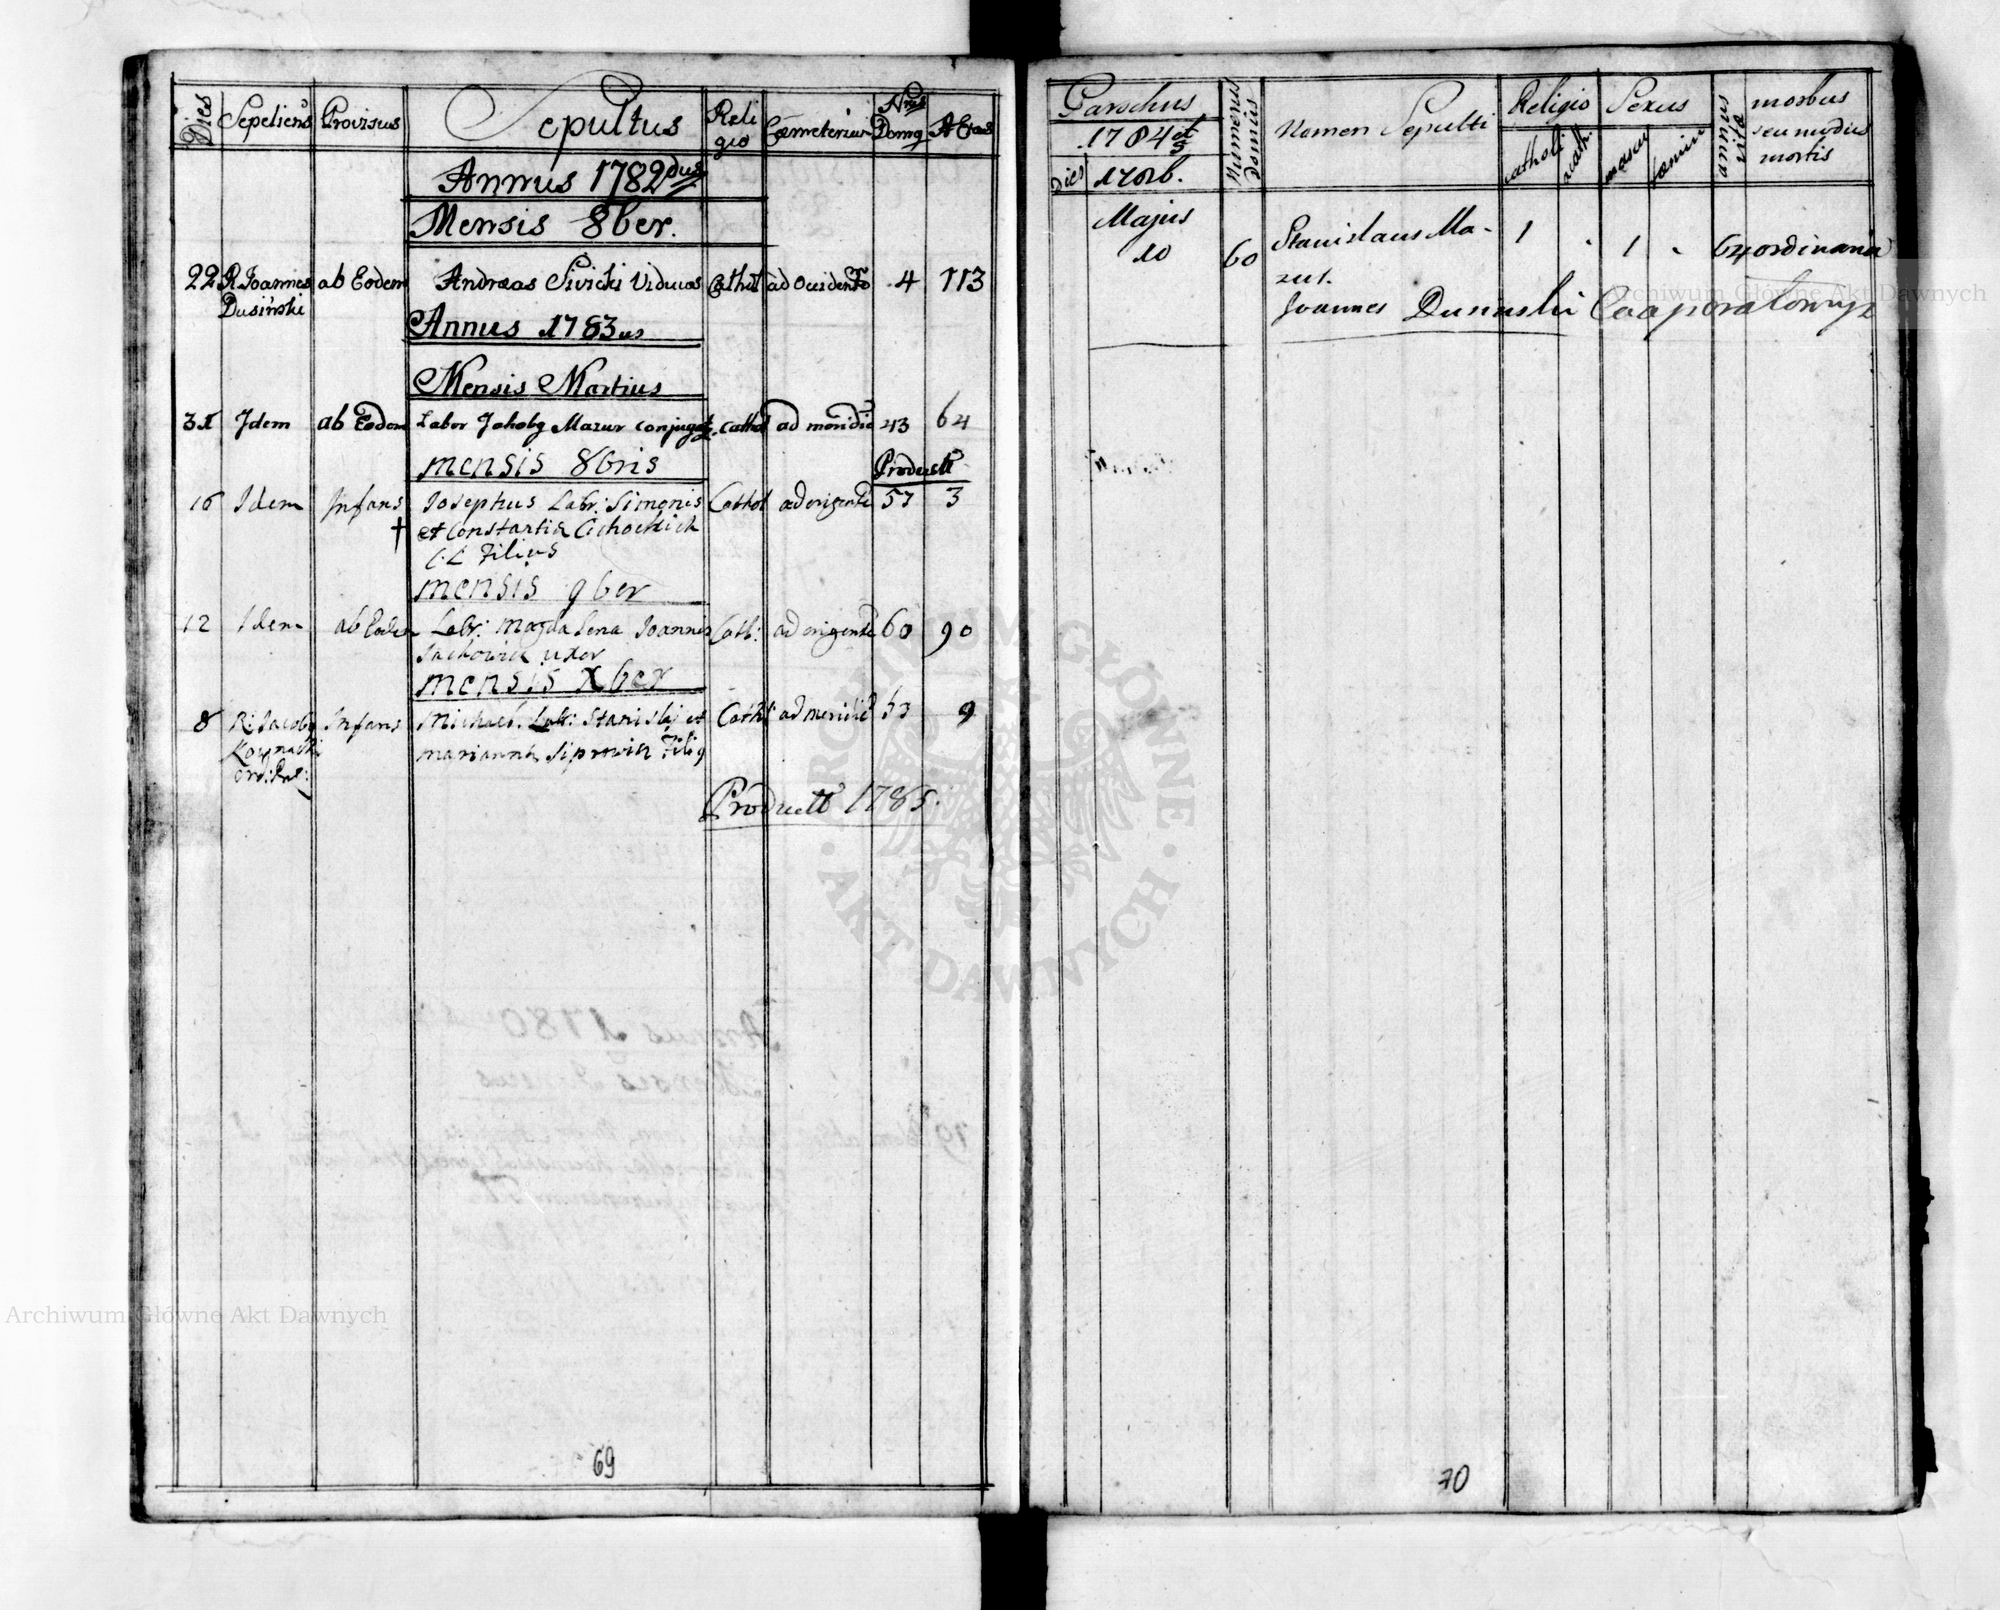 Dies Sepeliens Provisus Sepultus Religio Cœmeterium Nrus Domg Aetas
Annus 1782dus
Mensis 8ber.
22 R Joannes ab Eodem Andreas Sivicki Viduus Cathol ad Occidente 4 113
Dusinski
Annus 1783us
Mensis Martius
31 Idem ab Eodem Labor Jakobg Mazur conjugatg cathol ad meridie 43 64
mensis 8bris Product
16 Idem Infans Josephus Labr: Simonis Cathol ad origente 57 3
† et Constantia Cichockich
C:L Filius
mensis 9ber
12 Idem ab Eodem Labr: Magdalena Joannis Cath: ad origente 60 90
uxor
mensis Xber
8 R: Jacobg Infans Michael Labr: Stanislai et Cathl ad meridie 53 9
marianna Filig
Product 1785.
69
Parochus
1784 et 5
Dies 1786.
Numerus Domus
Nomen Sepulti
Religio
catholi acath.
Sexus
mascu femin
annus vitæ
morbus
seu modus
mortis
Majus
10 60 Stanislaus Ma- 1 . 1 . 64 ordinaria
zur.
Joannes Dusinski Cooperatormp
70
Archiwum Główne Akt Dawnych
Archiwum Główne Akt Dawnych
ARCHIWUM GŁÓWNE · AKT DAWNYCH ·